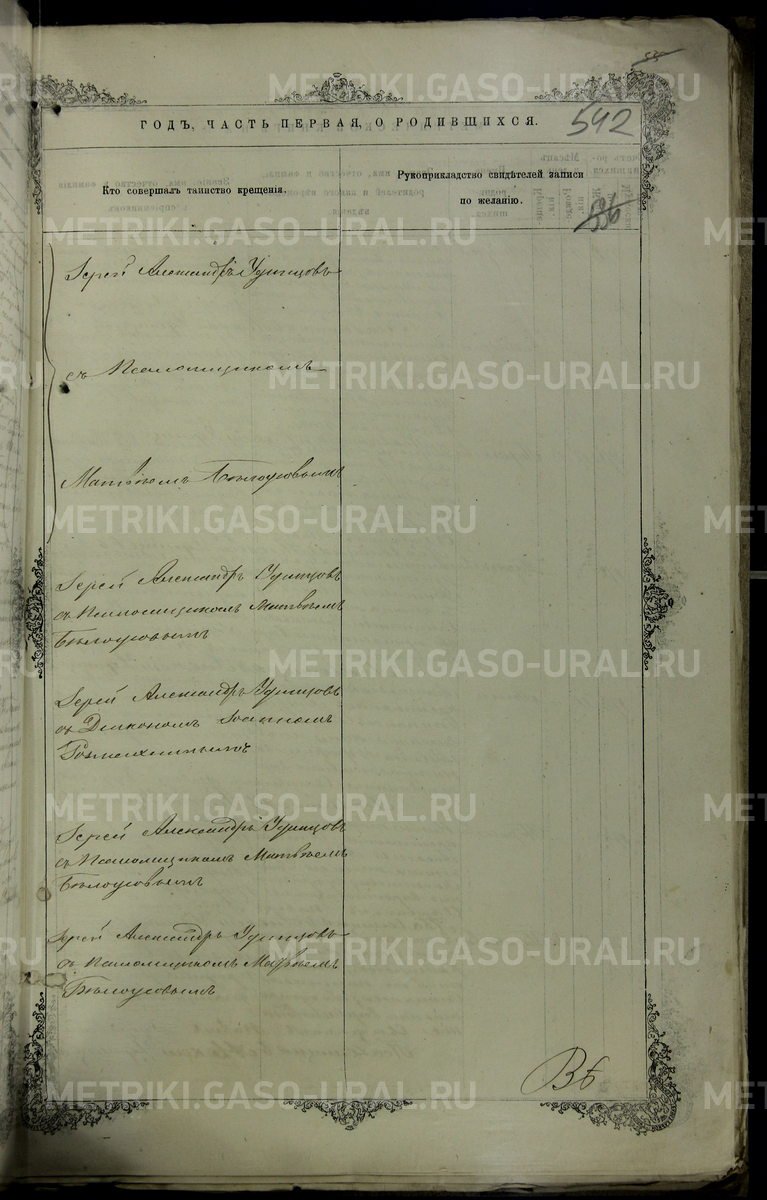 METRIKI.GASO-URAL.RU
ГОДЪ, ЧАСТЬ ПЕРВАЯ, О РОДИВШИХСЯ.
542
Кто совершалъ таинство крещенія.
Рукоприкладство свидѣтелей записи
по желанію.
536
Іерей Александръ Удинцовъ
съ Псаломщикомъ
Матвѣемъ Бѣлоусовымъ
Іерей Александръ Удинцовъ
съ Псаломщикомъ Матвѣемъ
Бѣлоусовымъ
Іерей Александръ Удинцовъ
съ Діакономъ Іоанномъ
Іерей Александръ Удинцовъ
съ Псаломщикомъ Матвѣемъ
Бѣлоусовымъ
Іерей Александръ Удинцовъ
съ Псаломщикомъ Матвѣемъ
Бѣлоусовымъ